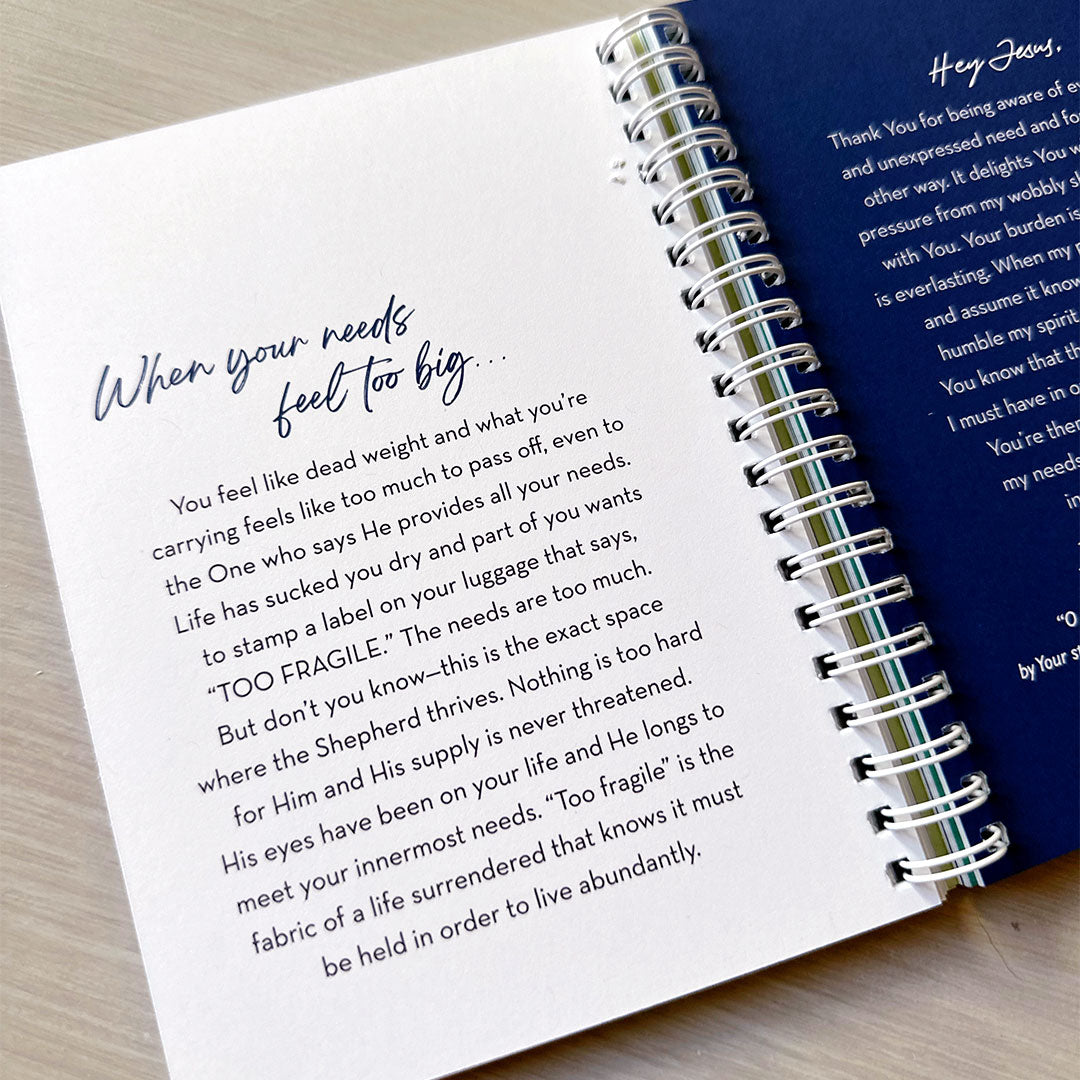 When your needs
feel too big...
You feel like dead weight and what you're
carrying feels like too much to pass off, even to
the One who says He provides all your needs.
Life has sucked you dry and part of you wants
to stamp a label on your luggage that says,
“TOO FRAGILE.” The needs are too much.
But don't you know—this is the exact space
where the Shepherd thrives. Nothing is too hard
for Him and His supply is never threatened.
His eyes have been on your life and He longs to
meet your innermost needs. “Too fragile” is the
fabric of a life surrendered that knows it must
be held in order to live abundantly.
Hey Jesus,
Thank You for being aware of
and unexpressed need and
other way. It delights You
pressure from my wobbly
with You. Your burden is
is everlasting. When my
and assume it
humble my spirit
You know that
I must have in
You're
my needs
in
“O
by Your